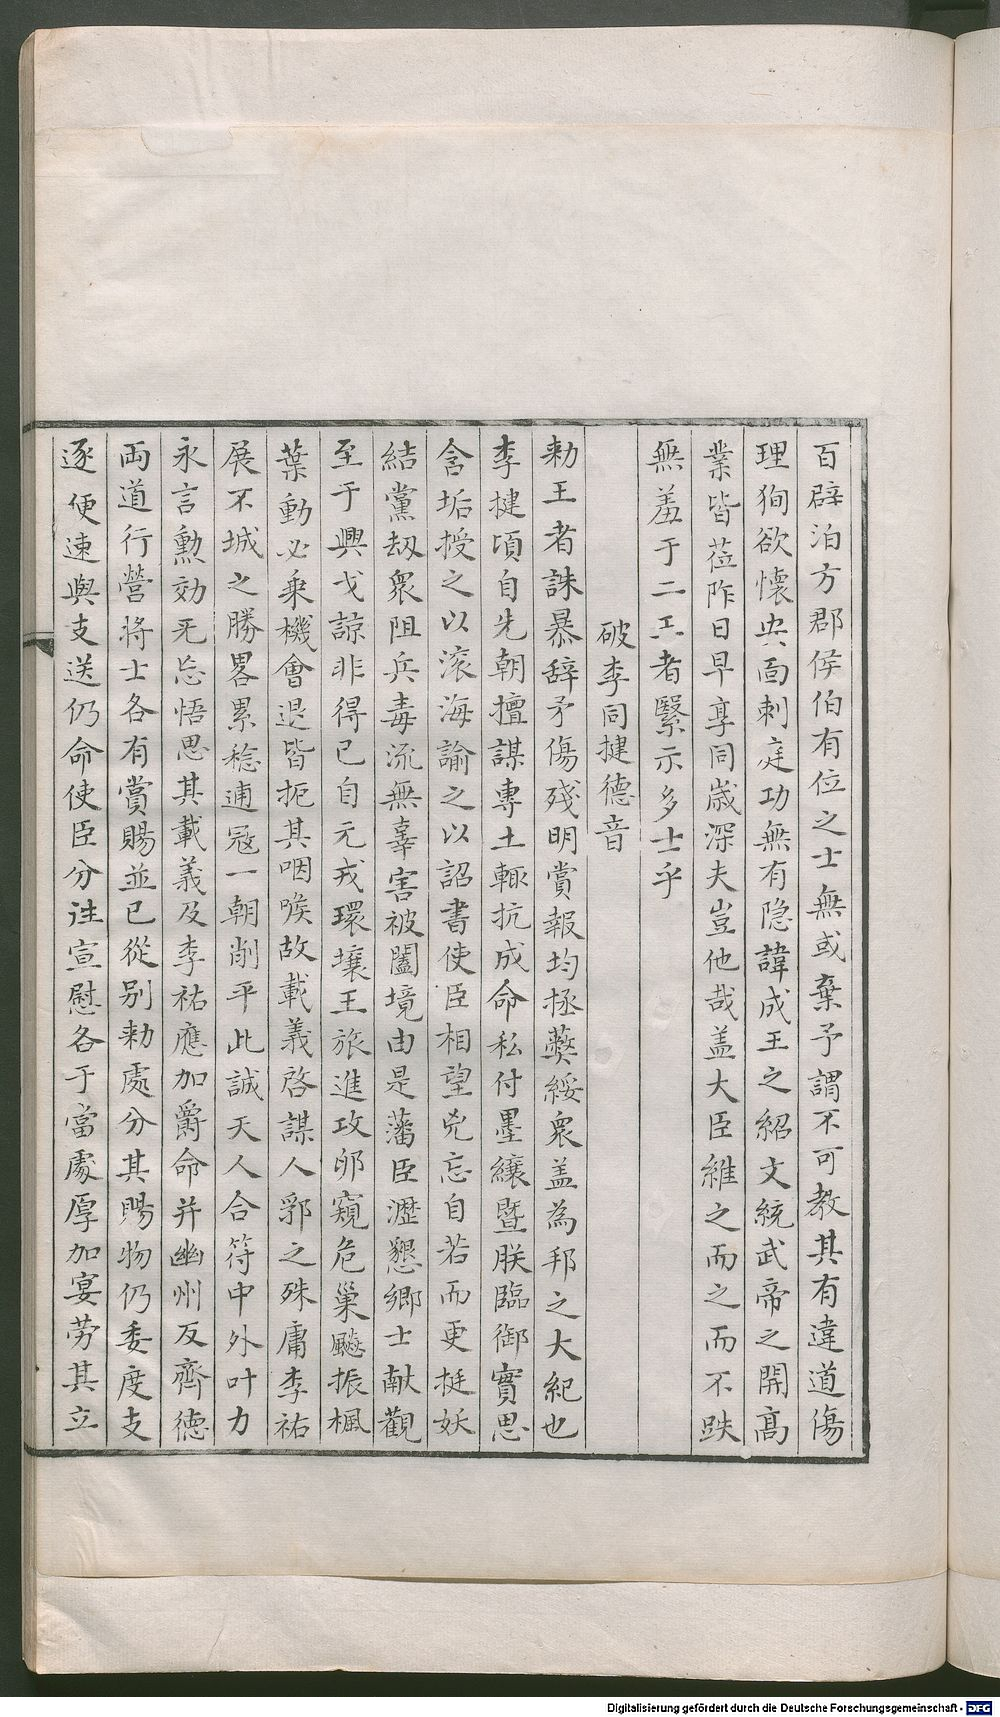 百辟洎方郡侯伯有位之士無或棄予謂不可教其有違道傷
理狥欲懷央面刺庭功無有隐諱成王之紹文統武帝之開高
業皆莅阼日早享同歲深夫豈他哉盖大臣維之而之而不跌
無羞于二工者緊示多士乎
破李同揵德音
勑王者誅暴辞矛傷殘明賞報均拯獘綏衆盖為邦之大紀也
李揵頃自先朝擅謀專土輙抗成命私付墨縗暨朕臨御實思
含垢授之以滚海諭之以詔書使臣相望兇忘自若而更挺妖
結黨刼衆阻兵毒流無辜害被闔境由是藩臣瀝懇鄉士献觀
至于興戈諒非得已自元戎環壤王旅進攻卵窺危巢飈振楓
葉動必乗機會退皆扼其咽喉故載義啓謀人郛之殊庸李祐
展不城之勝畧累稔逋冦一朝削平此誠天人合符中外叶力
永言勲効旡忘悟思其載義及李祐應加爵命并幽州反齊德
両道行營将士各有賞賜並已從别勑處分其賜物仍委度支
逐便速與支送仍命使臣分往宣慰各于當處厚加宴劳其立
Digitalisierung gefördert durch die Deutsche Forschungsgemeinschaft - DFG